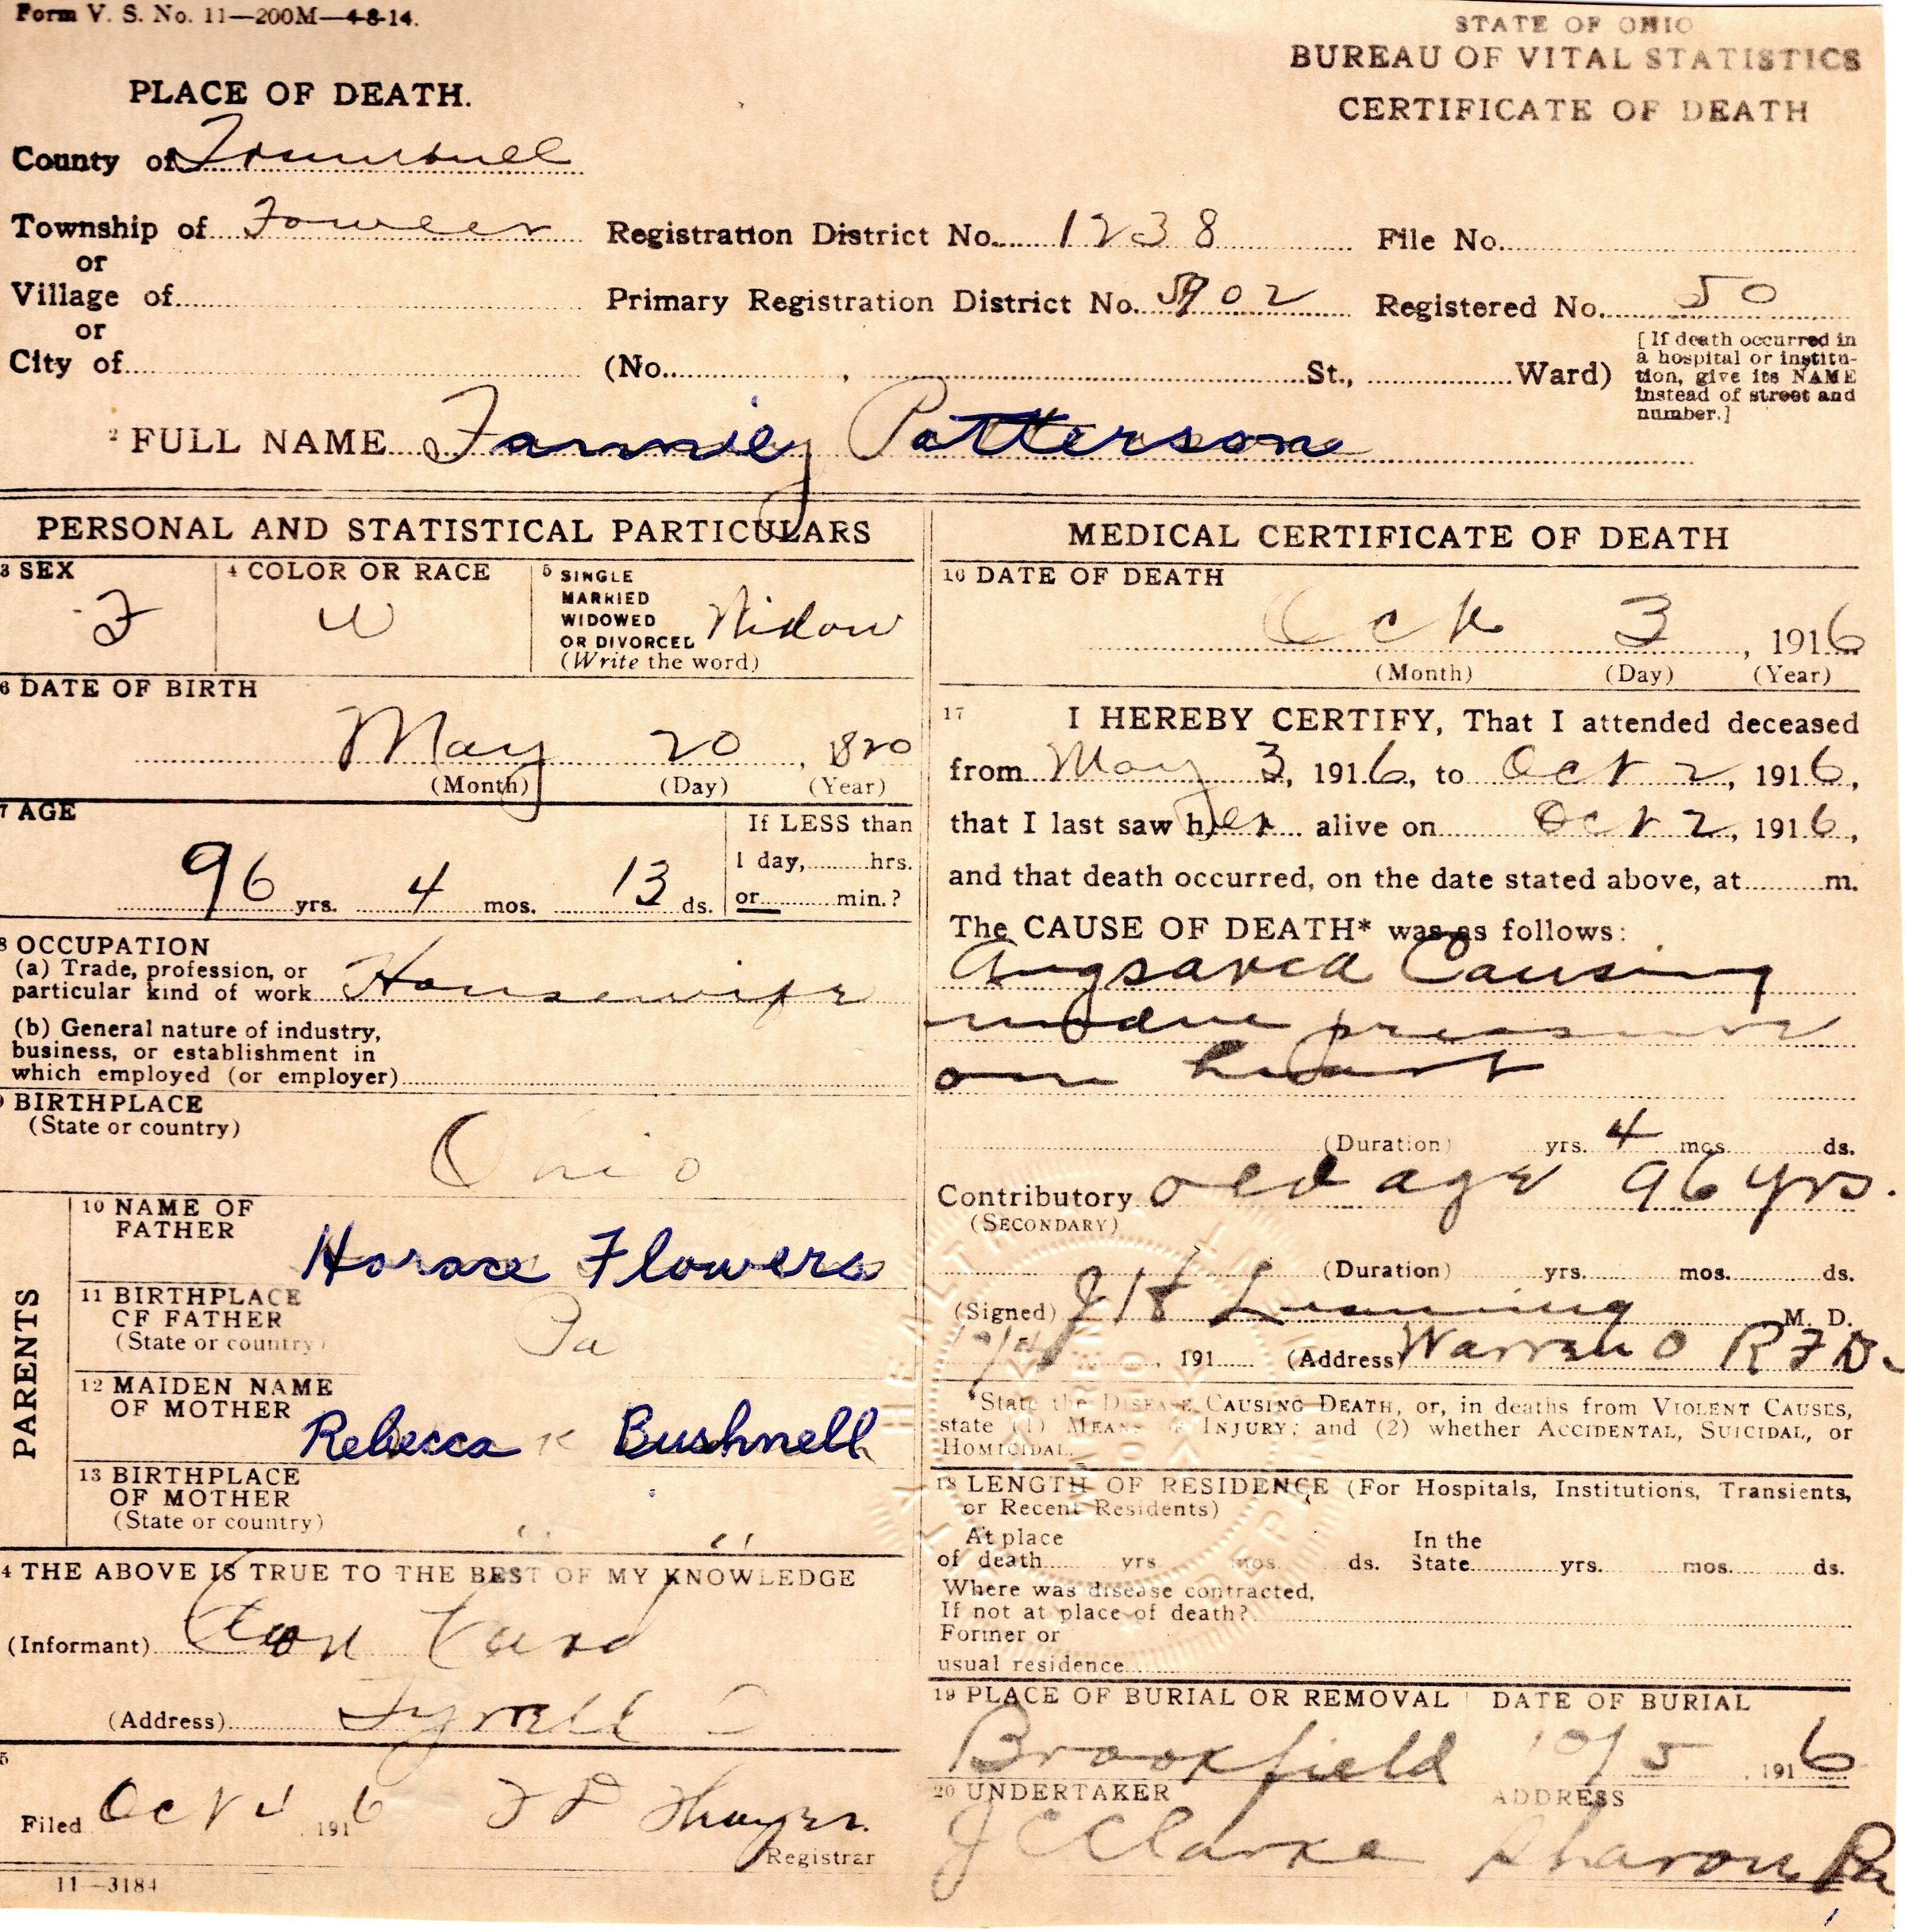 Form V. S. No. 11—200M—4-8-14.
STATE OF OHIO
BUREAU OF VITAL STATISTICS
CERTIFICATE OF DEATH
PLACE OF DEATH.
County of Trumbull
Township of Fowler Registration District No. 1238 File No.
or
Village of Primary Registration District No. 5902 Registered No. 50
or
City of (No. , St., Ward)
[If death occurred in
a hospital or institu-
tion, give its NAME
instead of street and
number.]
2 FULL NAME Fanniey Patterson
PERSONAL AND STATISTICAL PARTICULARS
3 SEX F
4 COLOR OR RACE W
5 SINGLE
MARRIED
WIDOWED
OR DIVORCED Widow
(Write the word)
6 DATE OF BIRTH
May 20, 1820
(Month) (Day) (Year)
7 AGE
96 yrs. 4 mos. 13 ds.
If LESS than
1 day, hrs.
or min.?
8 OCCUPATION
(a) Trade, profession, or
particular kind of work Housewife
(b) General nature of industry,
business, or establishment in
which employed (or employer)
9 BIRTHPLACE
(State or country)
Ohio
PARENTS
10 NAME OF
FATHER
Horace Flowers
11 BIRTHPLACE
OF FATHER
(State or country)
Pa
12 MAIDEN NAME
OF MOTHER
Rebecca Bushnell
13 BIRTHPLACE
OF MOTHER
(State or country)
" "
14 THE ABOVE IS TRUE TO THE BEST OF MY KNOWLEDGE
(Informant)
(Address) Tyrrell O
Filed Oct 4 1916 Thayer
Registrar
11—3184
MEDICAL CERTIFICATE OF DEATH
16 DATE OF DEATH
Oct 3, 1916
(Month) (Day) (Year)
17 I HEREBY CERTIFY, That I attended deceased
from May 3, 1916, to Oct 2, 1916,
that I last saw her alive on Oct 2, 1916,
and that death occurred, on the date stated above, at m.
The CAUSE OF DEATH* was as follows:
Causing
undue pressure
on heart
(Duration) yrs. 4 mos. ds.
Contributory old age 96 yrs.
(SECONDARY)
(Duration) yrs. mos. ds.
(Signed) J H M. D.
10/4, 191 (Address) Warren O RFD
*State the DISEASE CAUSING DEATH, or, in deaths from VIOLENT CAUSES,
state (1) MEANS OF INJURY; and (2) whether ACCIDENTAL, SUICIDAL, or
HOMICIDAL.
18 LENGTH OF RESIDENCE (For Hospitals, Institutions, Transients,
or Recent Residents)
At place In the
of death yrs. mos. ds. State yrs. mos. ds.
Where was disease contracted,
If not at place of death?
Former or
usual residence
19 PLACE OF BURIAL OR REMOVAL DATE OF BURIAL
Brookfield 10/5, 1916
20 UNDERTAKER ADDRESS
J C Clarke Sharon Pa